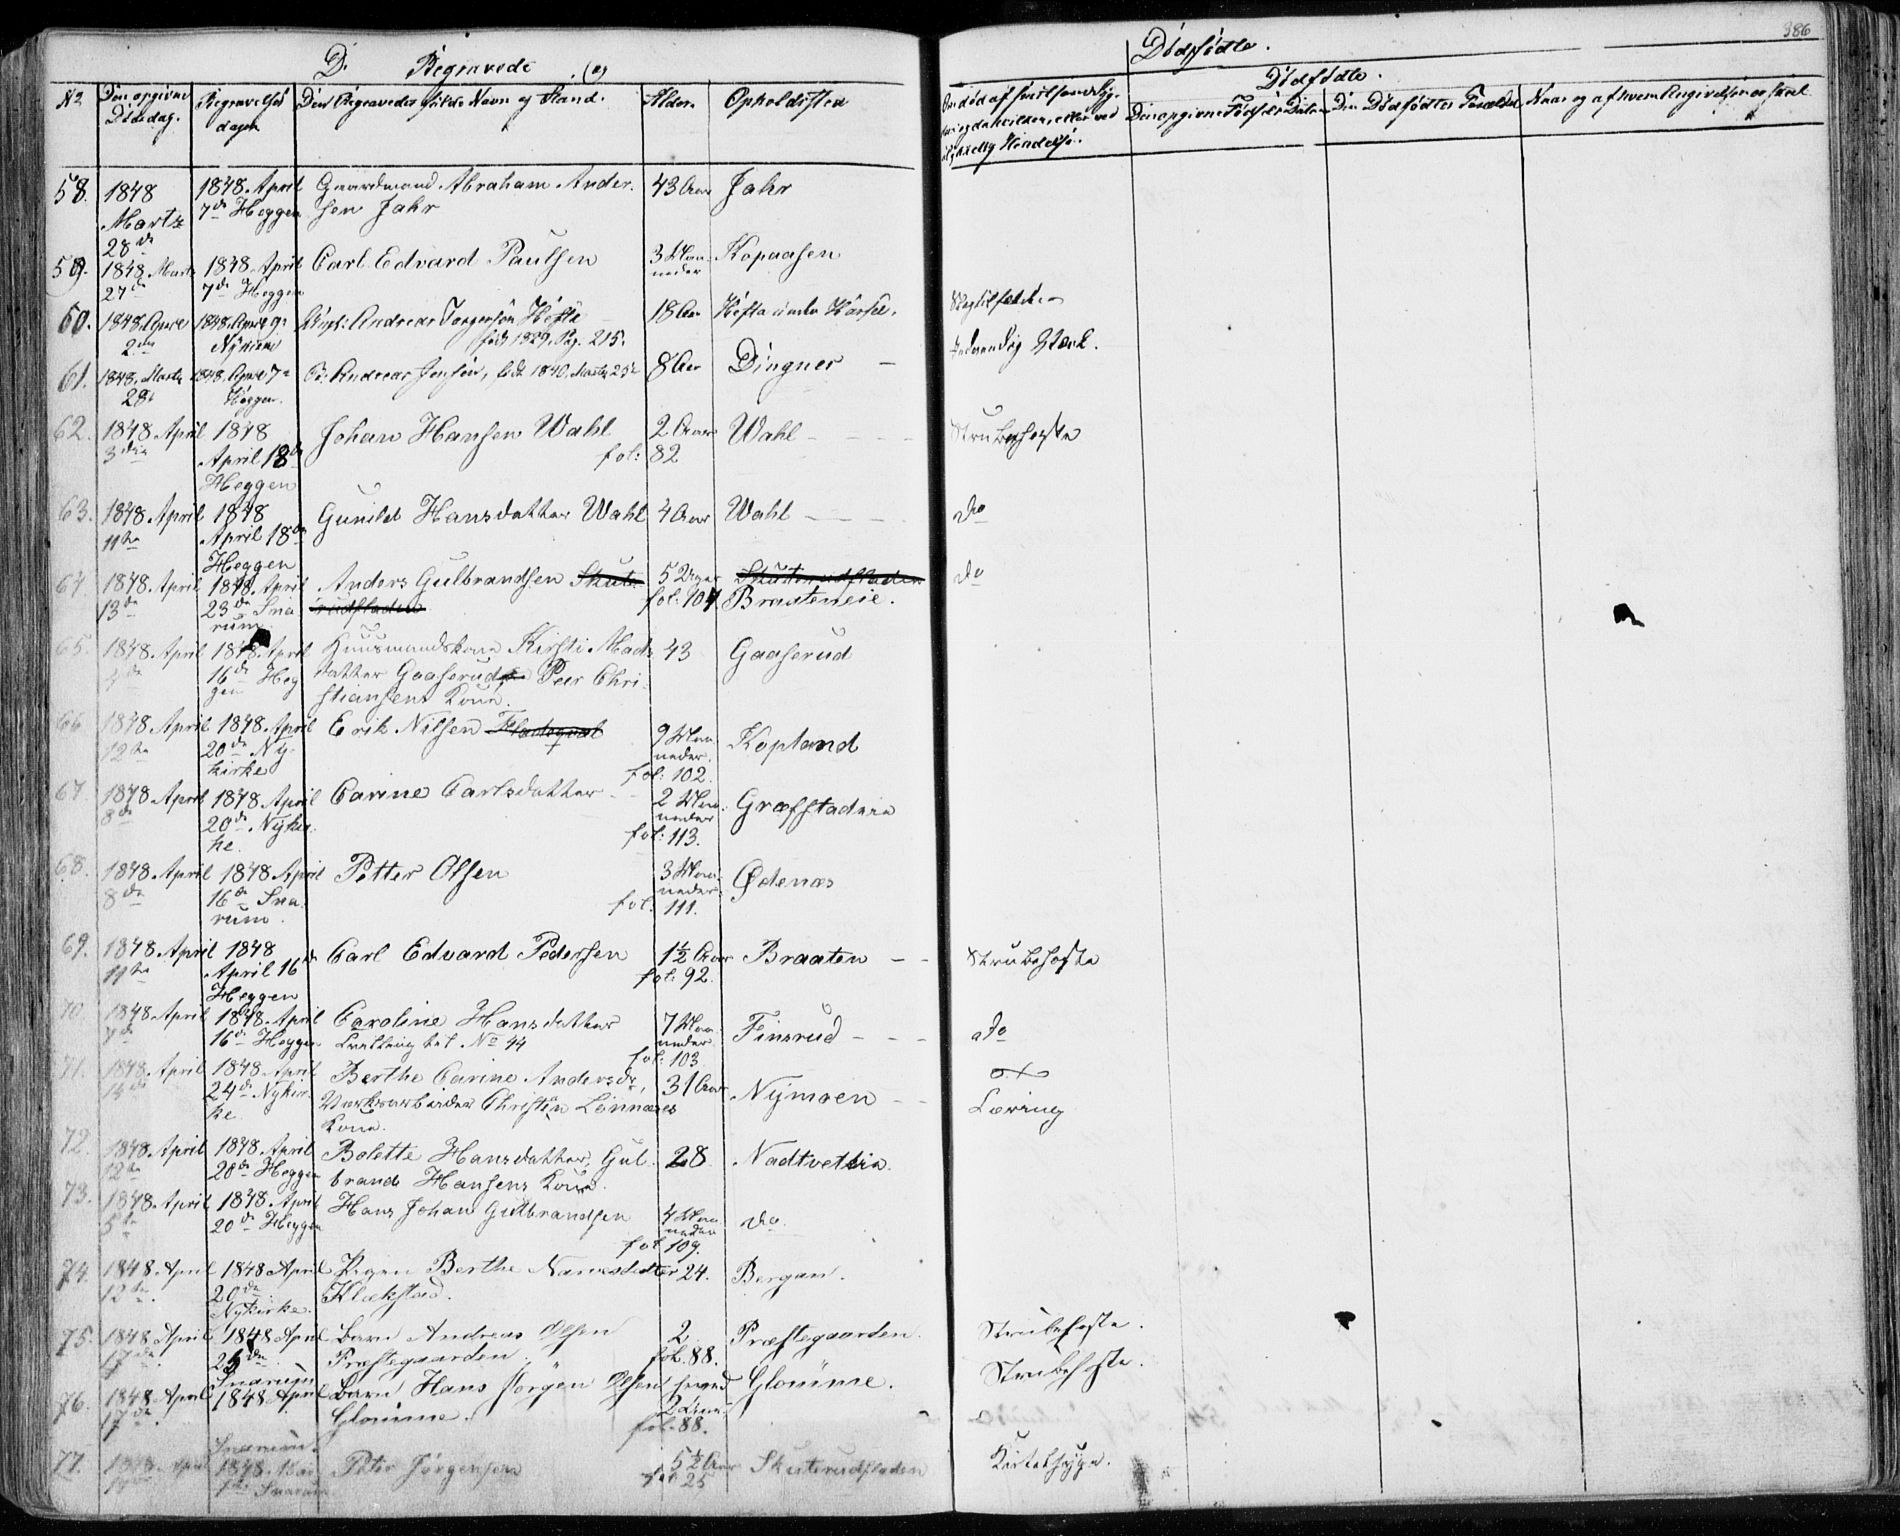 386
D. Begravede
Dødfødte.
No
Den opgivne Dødsdag.
Begravelsesdagen
Den Begravedes fulde Navn og Stand.
Alder
Opholdssted
Dødfødte.
Den opgivne Fødsels Datum
Den Dødfødtes Forældre
Naar og af hvem Angivelsen er skeet
58. 1848 Martz 28de 1848 April 7de Heggen Gaardmand Abraham Andersen Jahr 43 Aar Jahr
59. 1848 Martz 27de 1848 April 7de Heggen Carl Edvard Paulsen 3 Maaneder Kopaasen
60. 1848 April 2den 1848 April 9. Nykirke Andreas Jørgensen Hofte fød 1829. Pag. 215. 18 Aar
61. 1848. Martz 28 1848. April 7de Heggen. Andreas Jensen, født 1840. Martz 25 8 Aar Dingner
62. 1848 April 3die 1848 April 18de Heggen Johan Hansen Wahl 2 Aar fol: 82 Wahl Strubehoste
63. 1848 April 11te 1848 April 18de Heggen Gunild Hansdatter Wahl 4 Aar Wahl do
64. 1848 April 13de 1848 April 23de Snarum Anders Gulbrandsen Skuterudfladen 5 Uger fol: 107 Skuterudfladen Braateneie. do
65. 1848 April 1848 April 16de Heggen Huusmandskone Kirsti Madsdatter Gaaserud Peer Christiansens Kone. 43 Gaaserud
66. 1848 April 12te 1848 April 20de Nykirke Erik Nilsen 9 Maaneder. fol: 102. Kopland
67. 1848 April 8de 1848 April 20de Nykirke. Carine Carlsdatter 2 Maaneder fol: 113. Græfstadeie
68. 1848 April 8de 1848 April 16de Snarum. Petter Olsen 3 Maaneder fol. 111. Ødenæs
69. 1848 April 11te 1848 April 16de Heggen Carl Edvard Pedersen 1½ Aar fol: 92. Braaten Strubehoste
70. 1848 April 7de 1848 April 16de Heggen Caroline Hansdatter No 44 7 Maaneder fol: 103 Finsrud do
71. 1848 April 1848 April 24de Nykirke Berthe Carine Andersdr, Værksarbeider Christen Lønnæses Kone. 31 Aar Nymoen
72. 1848 April 12te 1848 April 20de Heggen Bolette Hansdatter, Gulbrand Hansens Kone. 28 Nadtvedteie.
73. 1848 April 5te 1848 April 20de Heggen Hans Johan Gulbrandsen 4 Maaneder fol 109. do.
74. 1848 April 12te. 1848 April 20de Nykirke. Pigen Berthe Klækstad. 24. Bergan.
75. 1848 April 17de. 1848 April 25de Snarum Barn Andreas Olsen Præstegaarden. 2 fol. 88. Præstegaarden. Strubehoste.
76. 1848 April 17de. 1848 April Snarum. Barn Hans Jørgen Olsen Glomme. 2 Aar. fol. 88. Glomme. Strubehoste.
77. 1848 April 1848 Mai Snarum Peter Jørgensen 5½ Aar fol 25 Skuterudfladen Kirtelsyge.